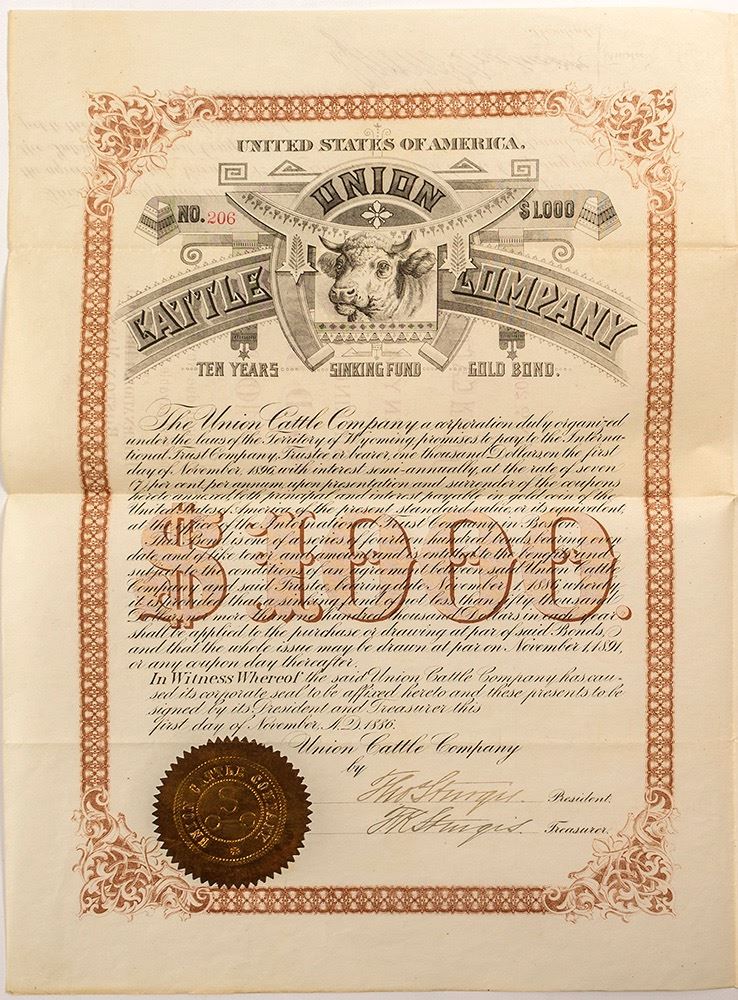 UNITED STATES OF AMERICA.
UNION
NO. 206
$1.000
CATTLE
COMPANY
TEN YEARS
SINKING FUND
GOLD BOND.
The Union Cattle Company a corporation duly organized
under the laws of the Territory of Wyoming promises to pay to the Interna-
tional Trust Company, Trustee or bearer, one thousand Dollars on the first
day of November, 1896, with interest semi-annually, at the rate of seven
(7) per cent, per annum, upon presentation and surrender of the coupons
hereto annexed both principal and interest payable in gold coin of the
United States of America of the present standard value, or its equivalent,
at the office of the International Trust Company in Boston.
This Bond is one of a series of fourteen hundred bonds bearing even
date and of like tenor and amount and is entitled to the benefit and
subject to the conditions of an agreement between said Union Cattle
Company and said Trustee bearing date November 1, 1886, whereby
it is provided that a sinking fund of not less than fifty thousand
Dollars nor more than one hundred thousand Dollars in each year
shall be applied to the purchase or drawing at par of said Bonds,
and that the whole issue may be drawn at par on November 1, 1891,
or any coupon day thereafter.
$1000.
In Witness Whereof the said Union Cattle Company has cau-
sed its corporate seal to be affixed hereto and these presents to be
signed by its President and Treasurer this
first day of November, A.D. 1886.
Union Cattle Company
by
Thos Sturgis President.
F.R. Sturgis. Treasurer.
UNION CATTLE COMPANY